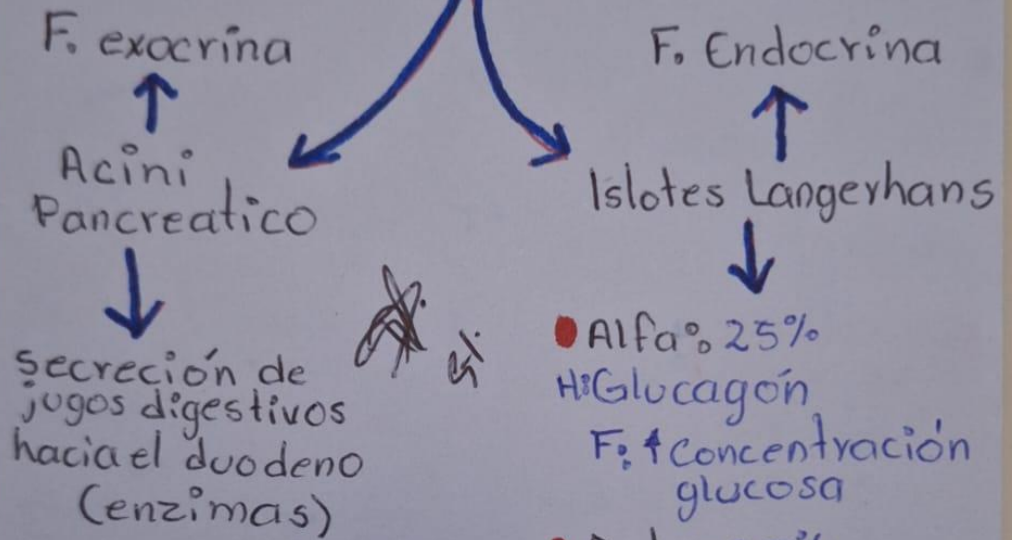 F. exocrina
Acini
Pancreatico
secreción de
jugos digestivos
hacia el duodeno
(enzimas)
F. Endocrina
Islotes Langerhans
Alfa: 25%
H:Glucagón
F: ↑Concentración
glucosa